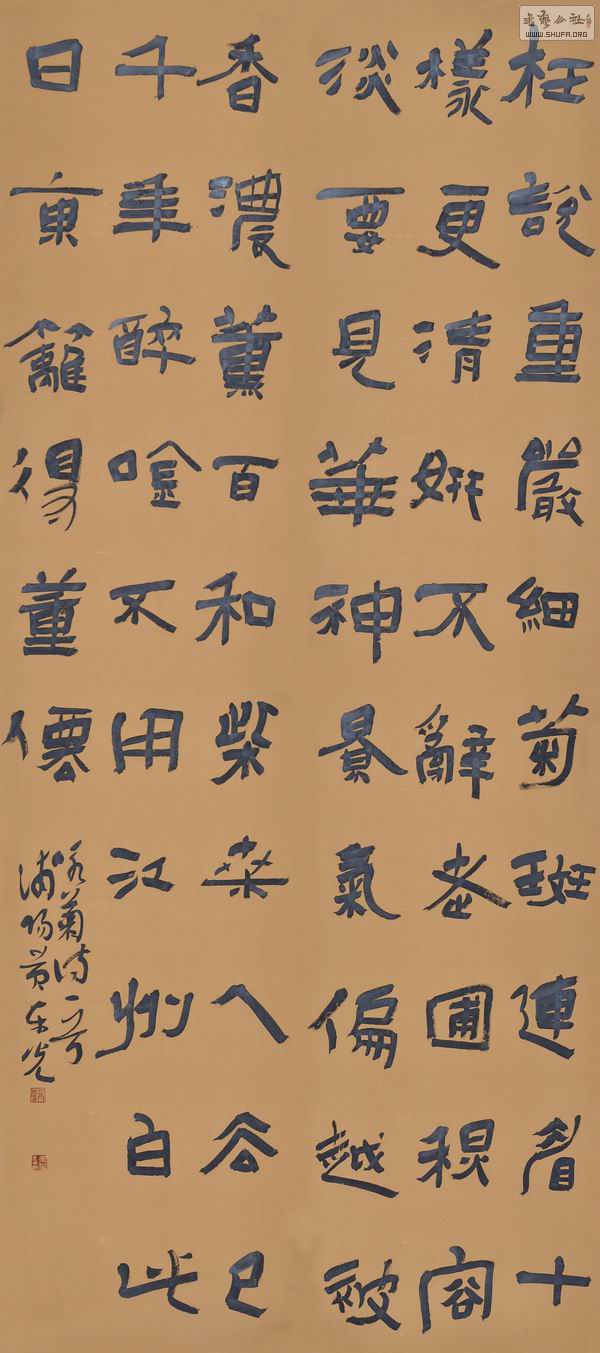 書藝公社
WWW.SHUFA.ORG
枉說重嚴細菊斑連看十
樣更清妍不辭老圃容
淡要見華神景氣偏越被
香濃薰百和柴桑人去已
千年醉唫不用江州白此
日東籬得董僊
咏菊詩一首
浦陽黃東光